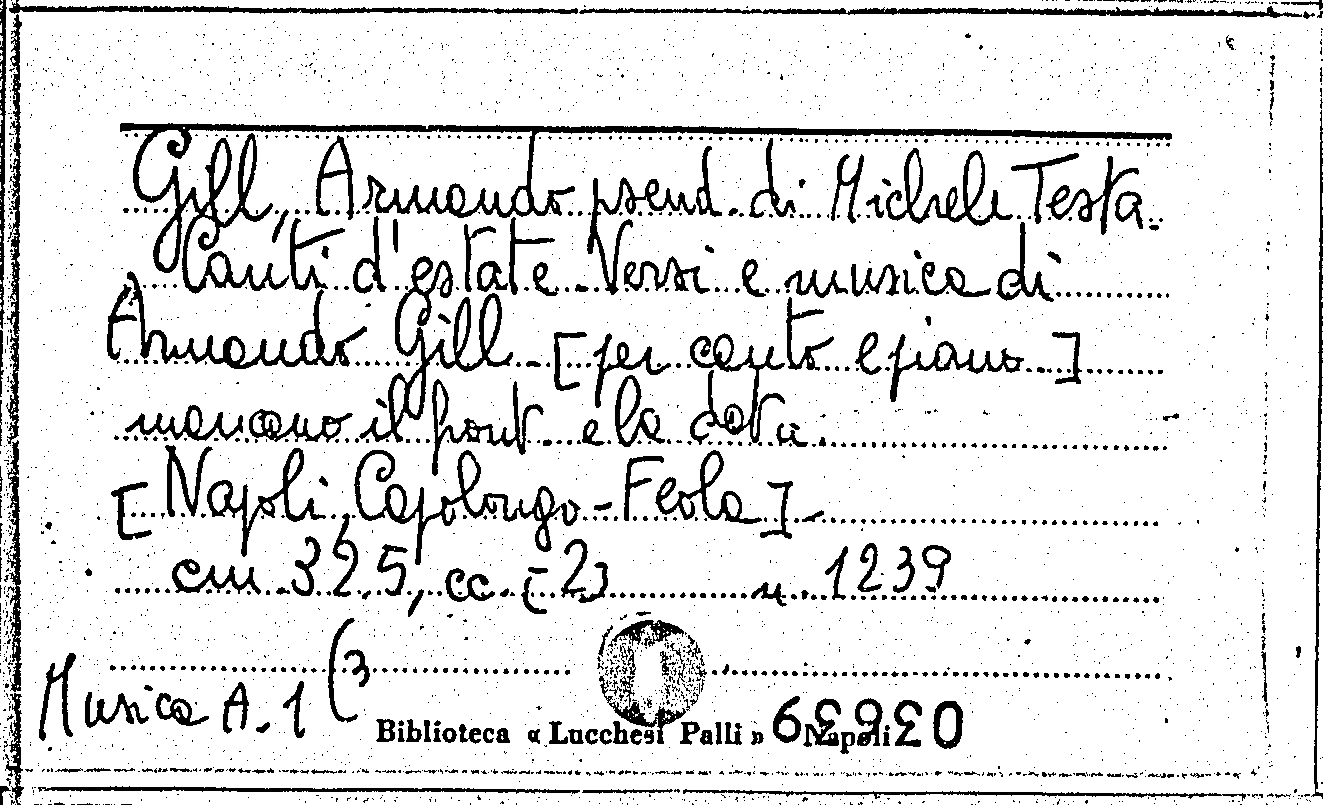 Gill, Armando pseud. di Michele Testa.
Canti d'estate. Versi e musica di
Armando Gill. [per canto e piano.]
mancano il front. e la data.
[Napoli, Capolongo-Feola].
cm 32.5, cc. [2] n. 1239
Musica A. 1 (3
Biblioteca « Lucchesi Palli » Napoli